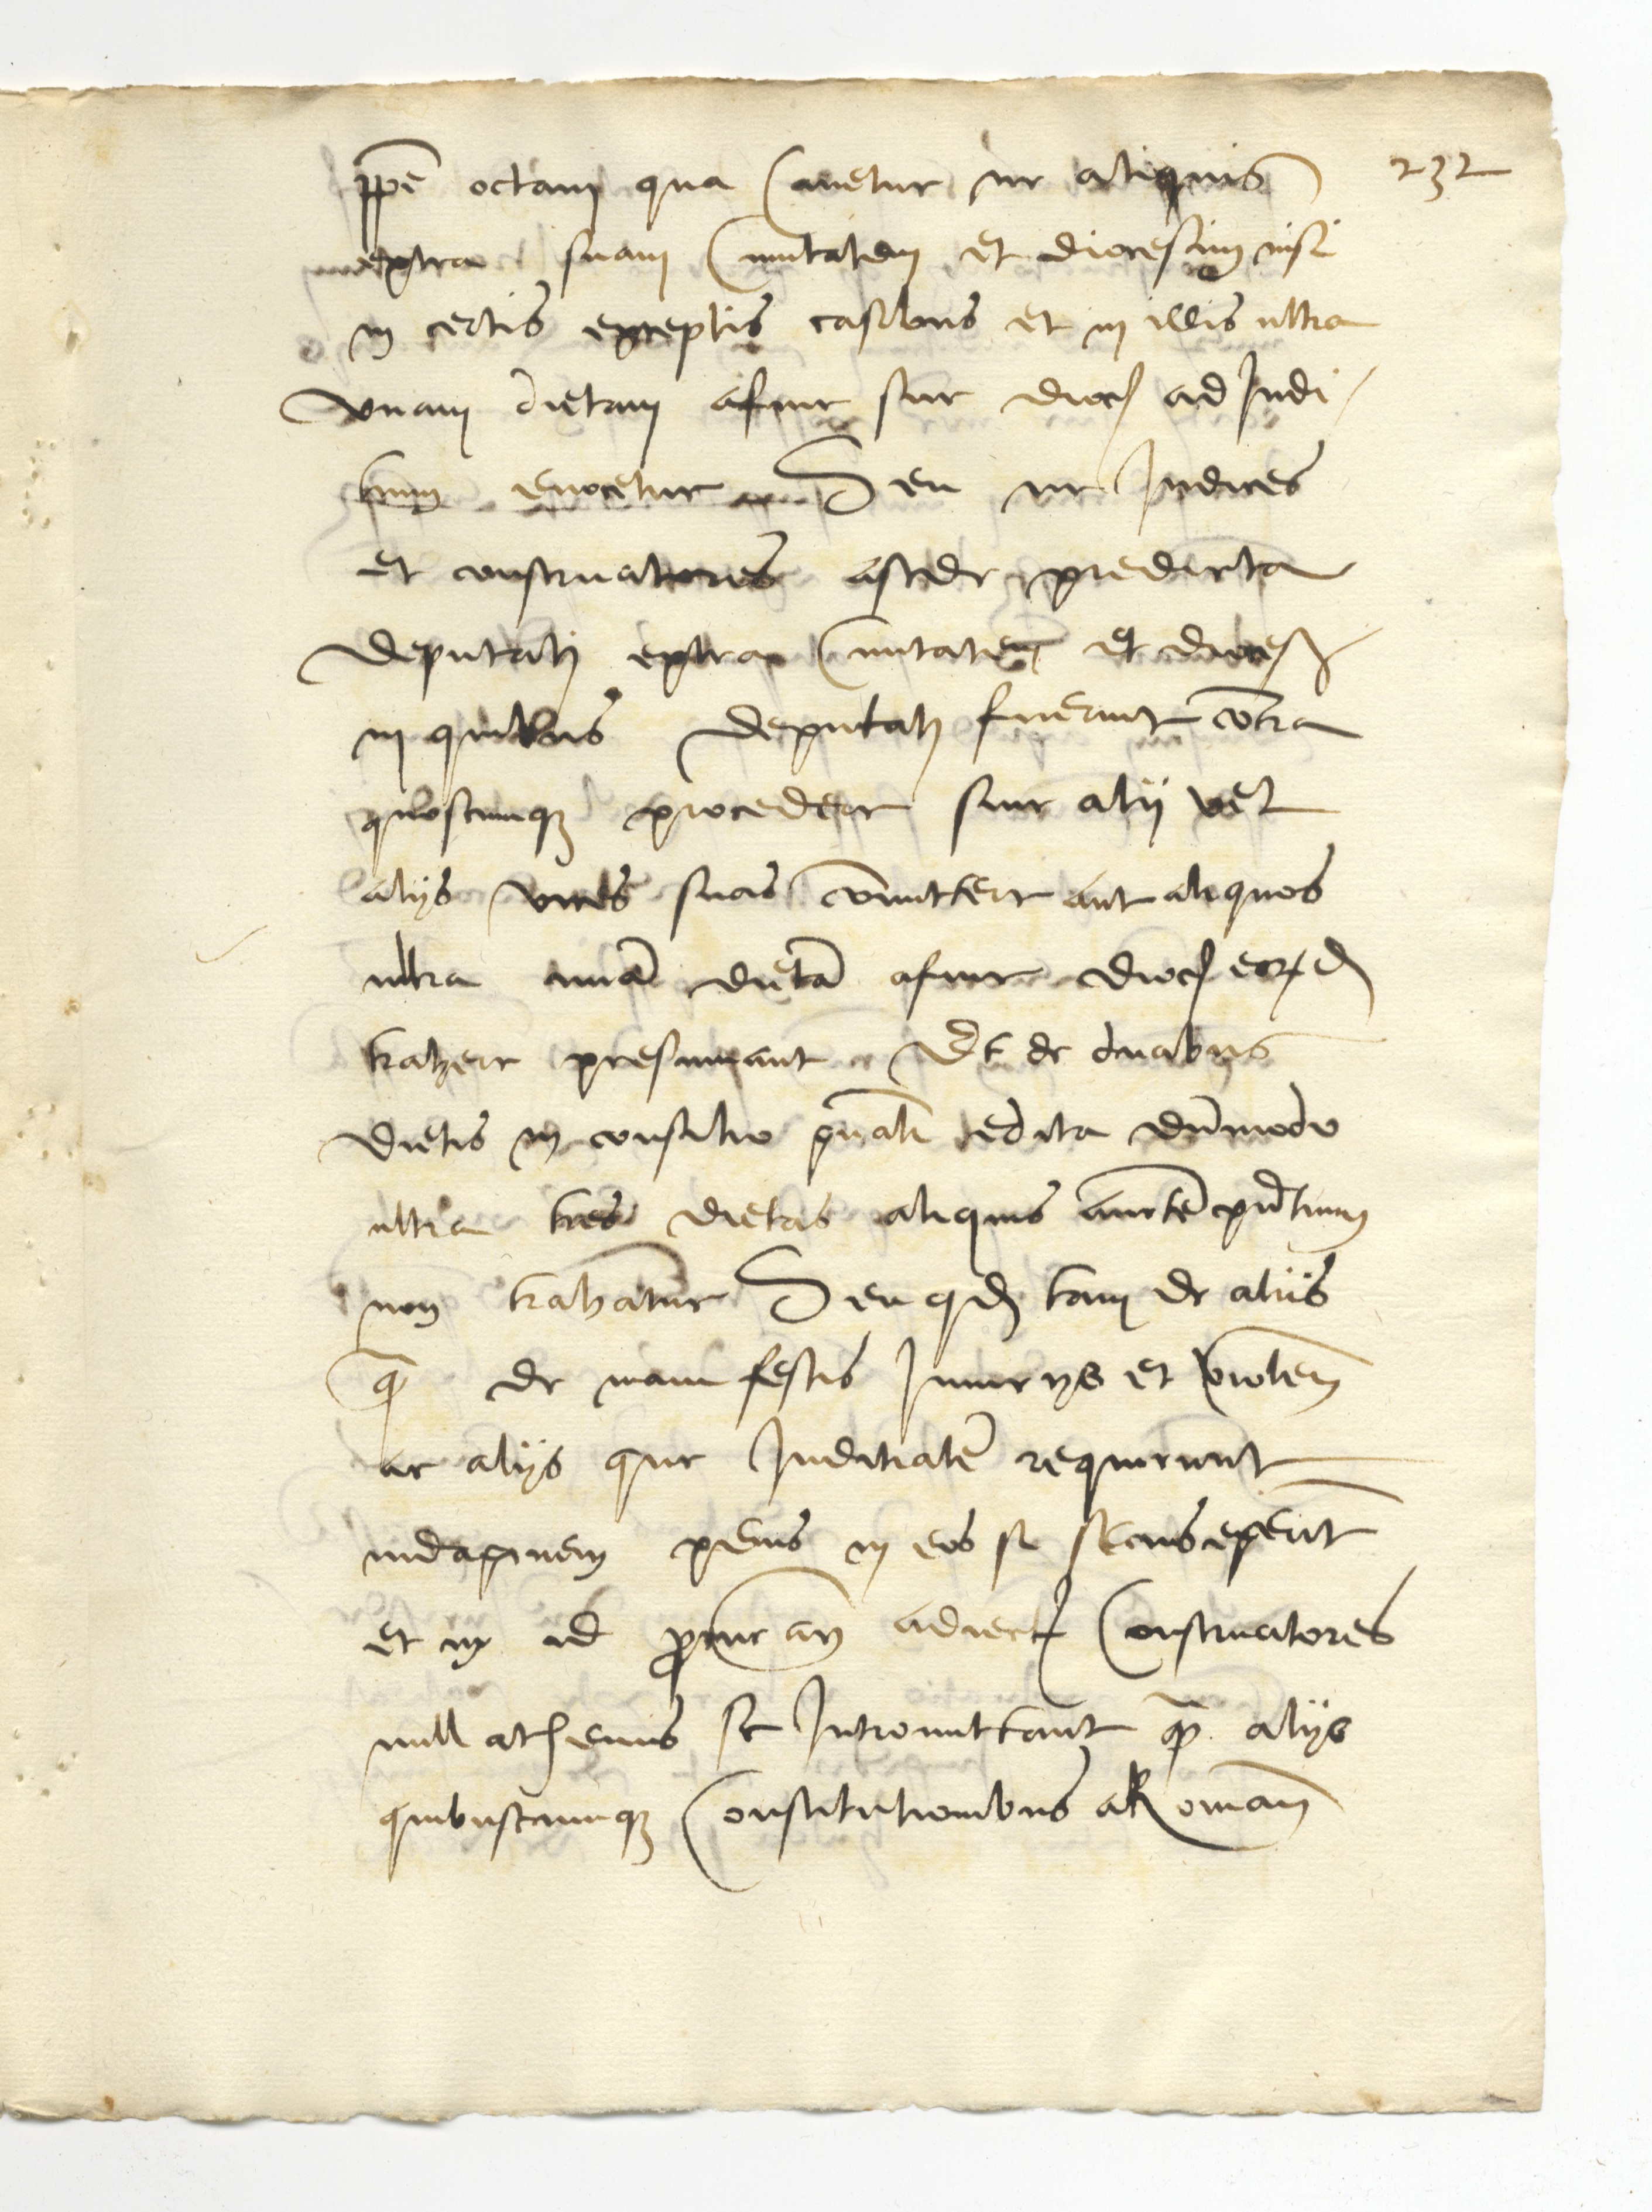 232
ppe octavi qua Cavetur ne aliquis
extra suam Civitatem et diocesim nisi
in certis exceptis casibus et in illis ultra
unam dietam a fine sue dioc ad Judi
tium evocetur Seu ne Judices
et conservatores a sede predicta
deputati extra Civitatem et dioces
in quibus deputati fuerunt contra
quoscumque procedere sive alii vel
aliis vices suas comittere aut aliquos
ultra unā dietā a fine dioc eord
trahere presumant Et de duabus
dietis in consilio gnali edita dummodo
ultra tres dietas aliquis aucte pntium
non trahatur Seu qd tam de aliis
qȝ de manifestis Iniuriis et violen
ac aliis que Juditialē requirunt
indaginem penis in eos si secus egerint
et in id procurañ adiect Conservatores
null athenus se Intromittant qȝ aliis
quibuscumque Constitutionibus a Roman